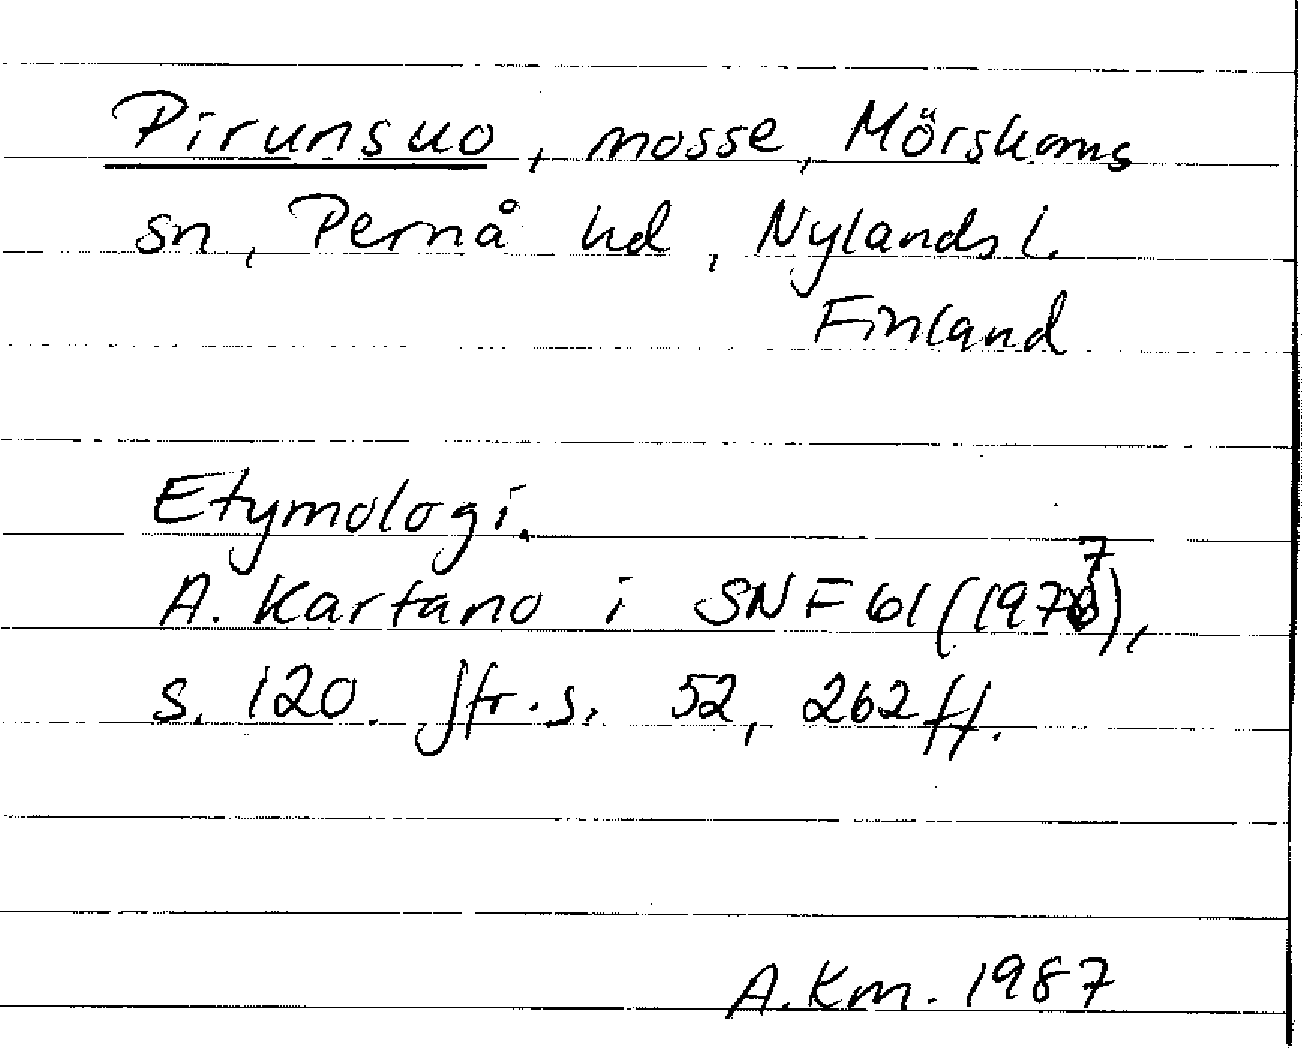 Pirunsuo, mosse, Mörskoms
sn, Pernå hd, Nylands l.
Finland
Etymologi.
A. Kartano i SNF 61 (1977),
s. 120. Jfr. s. 52, 262 ff.
A.Km. 1987